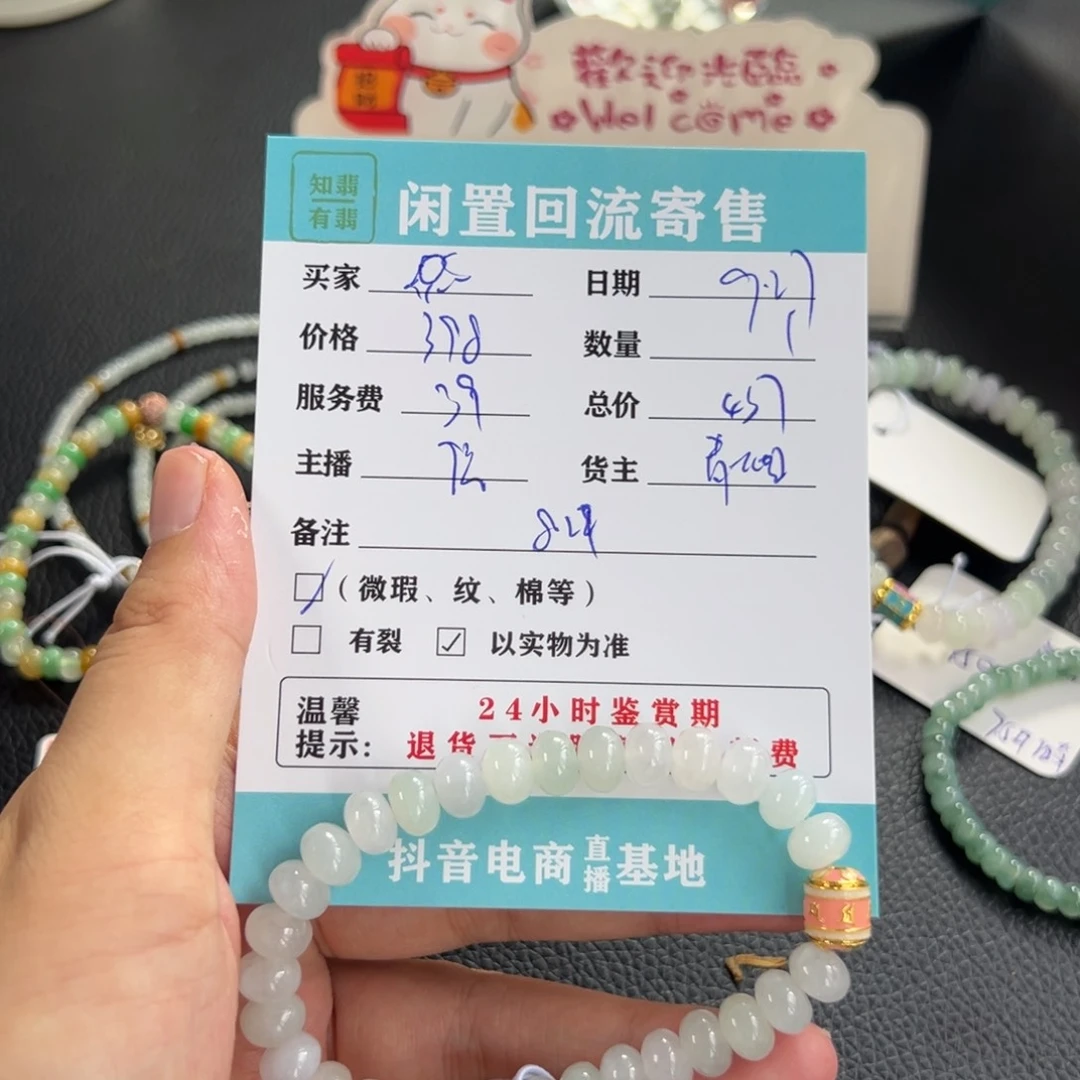 歡迎光臨
Welcome
知翡
有翡
闲置回流寄售
买家 日期 9.27
价格 398 数量 1
服务费 39 总价 437
主播 货主
备注
(微瑕、纹、棉等)
有裂 ✓ 以实物为准
温馨提示: 24小时鉴赏期
退货 费
抖音电商直播基地